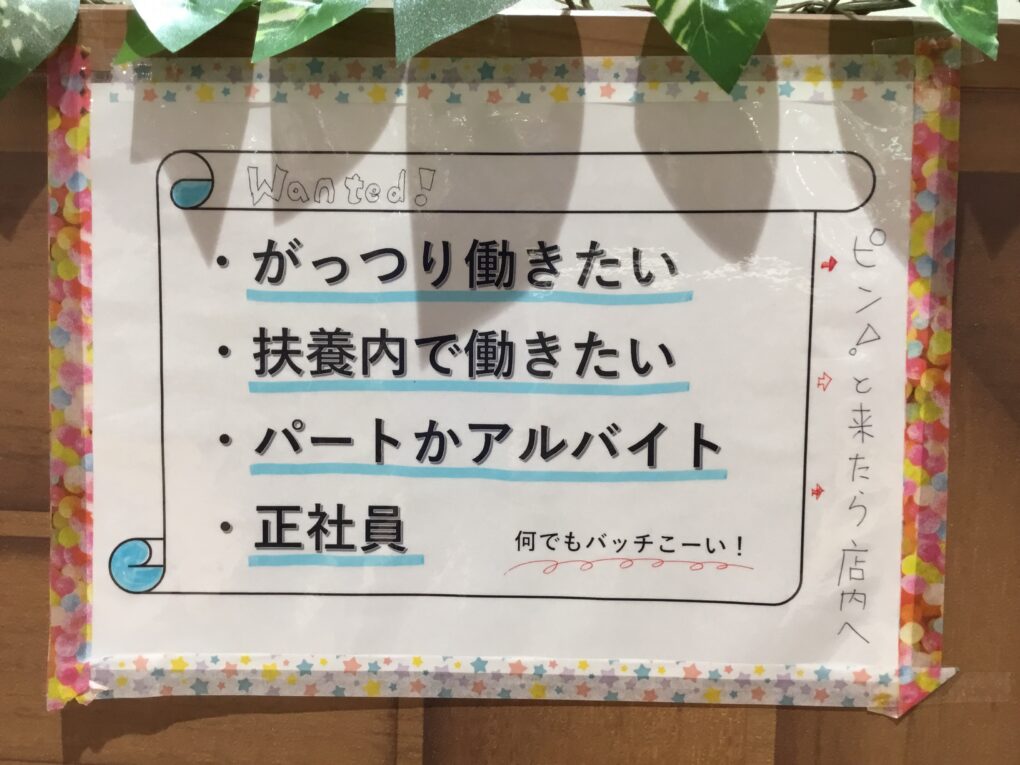 Wanted!
・がっつり働きたい
・扶養内で働きたい
・パートかアルバイト
・正社員
何でもバッチこーい！
ピン！と来たら店内へ